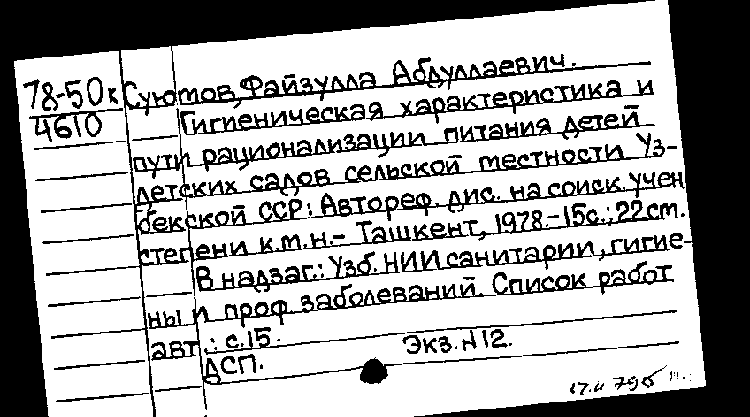 78-50к Суютов, Файзулла Абдуллаевич.
4610 Гигиеническая характеристика и
пути рационализации питания детей
детских садов сельской местности Уз-
бекской ССР: Автореф. дис. на соиск. учен
степени к.м.н.- Ташкент, 1978.-15с.; 22 см.
В надзаг.: Узб. НИИ санитарии, гигие-
ны и проф. заболеваний. Список работ
авт.: с.15.
ДСП. Экз.N12.